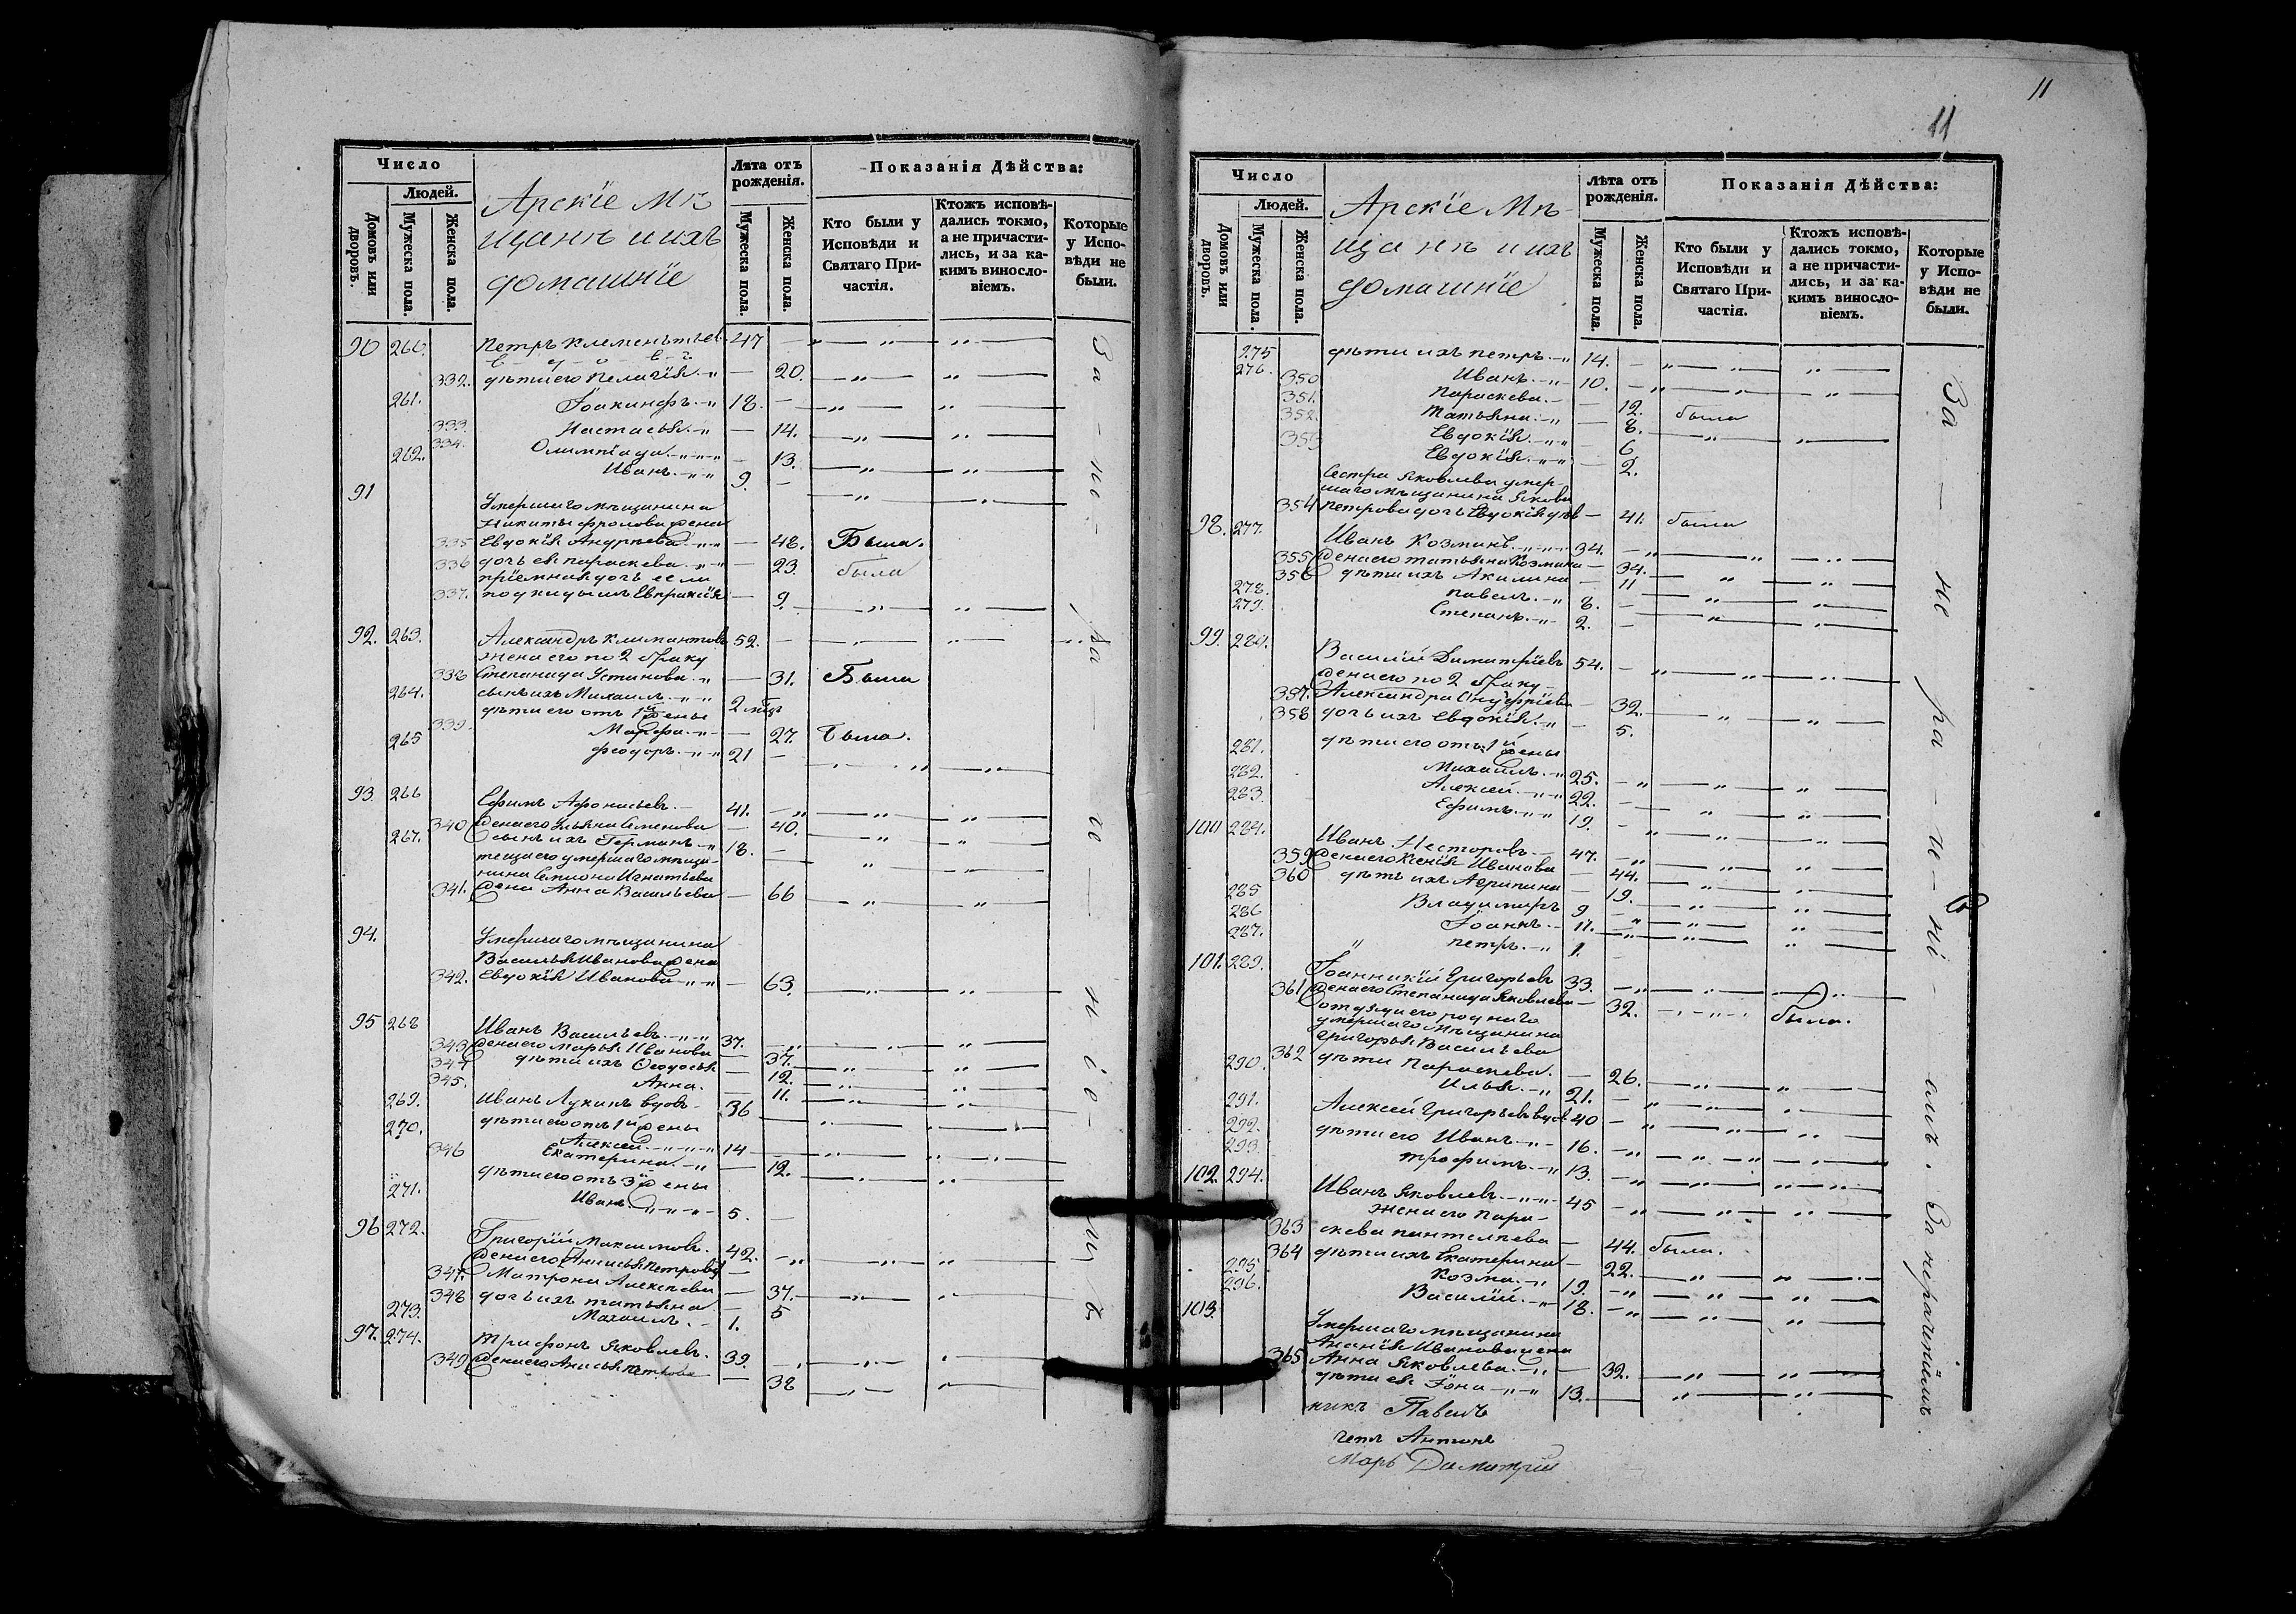 11
11
Число
Людей.
Домовъ или дворовъ.
Мужеска пола.
Женска пола.
Арскіе Мѣ
щане и ихъ
домашніе
Лѣта отъ рожденія.
Мужеска пола.
Женска пола.
Показанія Дѣйства:
Кто были у Исповѣди и Святаго Причастія.
Ктожъ исповѣдались токмо, а не причастились, и за какимъ винословіемъ.
Которые у Исповѣди не были.
90 260. Петръ Клементьевъ 47 —
332. дѣти его Пелагія — 20.
261. Іоакинфъ 18. —
333. Настасья — 14.
334. Олимпіада — 13.
262. Иванъ 9. —
91 Умершаго мѣщанина
Никиты Фролова жена
335 Евдокія Андреева — 48. Была.
336 дочь ея Параскева — 23. была
пріемная дочь ея
337. подкидышъ Евпраксія — 9.
92. 263. Александръ 52. —
жена его по 2 браку
338 Степанида Устинова — 31. Была
264. сынъ ихъ Михаилъ 2 мѣц
дѣти его отъ 1й жены
339. Марфа — 27. Была.
265 Феодоръ 21 —
93. 266 Ефимъ Афонасьевъ 41. —
340 жена его Ульяна Семенова — 40.
267. сынъ ихъ Германъ 18. —
теща его умершаго мѣща-
нина Симiона Игнатьева
341. жена Анна Васильева — 66
94. Умершаго мѣщанина
Василья Иванова жена
342. Евдокія Иванова — 63.
95 268 Иванъ Васильевъ 37.
343 жена его Марья Иванова — 37.
344 дѣти их Ѳеодосья — 12.
345. Анна. — 11.
269. Иванъ Лукинъ вдов 36
дѣти его отъ 1й жены
270. Алексей 14
346 Екатерина — 12.
дѣти его отъ 3й жены
271. Иванъ 5. —
96 272. Григорій Максимовъ 42.
жена его Анисья Петрова
347. Матрона Алексеева — 37.
348 дочь ихъ Татьяна — 5
273. Михаилъ 1.
97. 274. Трифонъ Яковлевъ 39.
349 жена его Анисья Петрова — 38
За — не — ра — че — ніе — мъ
Число
Людей.
Домовъ или дворовъ.
Мужеска пола.
Женска пола.
Арскіе Мѣ-
щане и ихъ
домашніе
Лѣта отъ рожденія.
Мужеска пола.
Женска пола.
Показанія Дѣйства:
Кто были у Исповѣди и Святаго Причастія.
Ктожъ исповѣдались токмо, а не причастились, и за какимъ винословіемъ.
Которые у Исповѣди не были.
275 дѣти ихъ Петръ 14. —
276. Иванъ 10. —
350 Параскева — 12. была
351. Татьяна — 8.
352. Евдокія — 6
353 Евдокія — 2.
Сестра Яковлева умер-
шаго мѣщанина Якова
354 Петрова дочь Евдокія дѣв — 41. была
98. 277. Иванъ Козминъ 34.
355 жена его Татьяна Козмина — 34.
356 дѣти ихъ Акилина — 11
278. Павелъ 8. —
279. Степанъ 2. —
99. 280. Василій Димитріевъ 54. —
жена его по 2 браку
357. Александра Онуфріева — 32.
358 дочь ихъ Евдокія — 5.
дѣти его отъ 1й жены
281. Михаилъ 25.
282. Алексей 22. —
283. Ефимъ 19. —
100 284. Иванъ Несторовъ 47.
359 жена его Ксенія Иванова — 44.
360 дѣти ихъ Агрипина — 19.
285 Владимиръ 9 —
286 Іоаннъ 11.
287. Петръ 1. —
101. 289. Іоанникій Григорьевъ 33.
361 жена его Степанида Яковлева — 32. была.
отъ дяди его роднаго
умершаго Мѣщанина
Григорья Васильева
362 дѣти Параскева. — 26.
290. Илья 21. —
291. Алексей Григорьевъ вдов 40 —
292. дѣти его Иванъ 16.
293. Трофимъ 13.
102. 294. Иванъ Яковлевъ 45
жена его Пара-
363 скева Пантелеева — 44. была.
364 дѣти ихъ Екатерина — 22.
295. Козма 19.
296. Василій 18.
103. Умершаго мѣщанина
Ананія Иванова жена
365 Анна Яковлева — 32.
дѣти ея Іона 13.
За — не — ра — че — ні — емъ. За нераченіемъ
никъ Павелъ
Антонъ
Димитрій